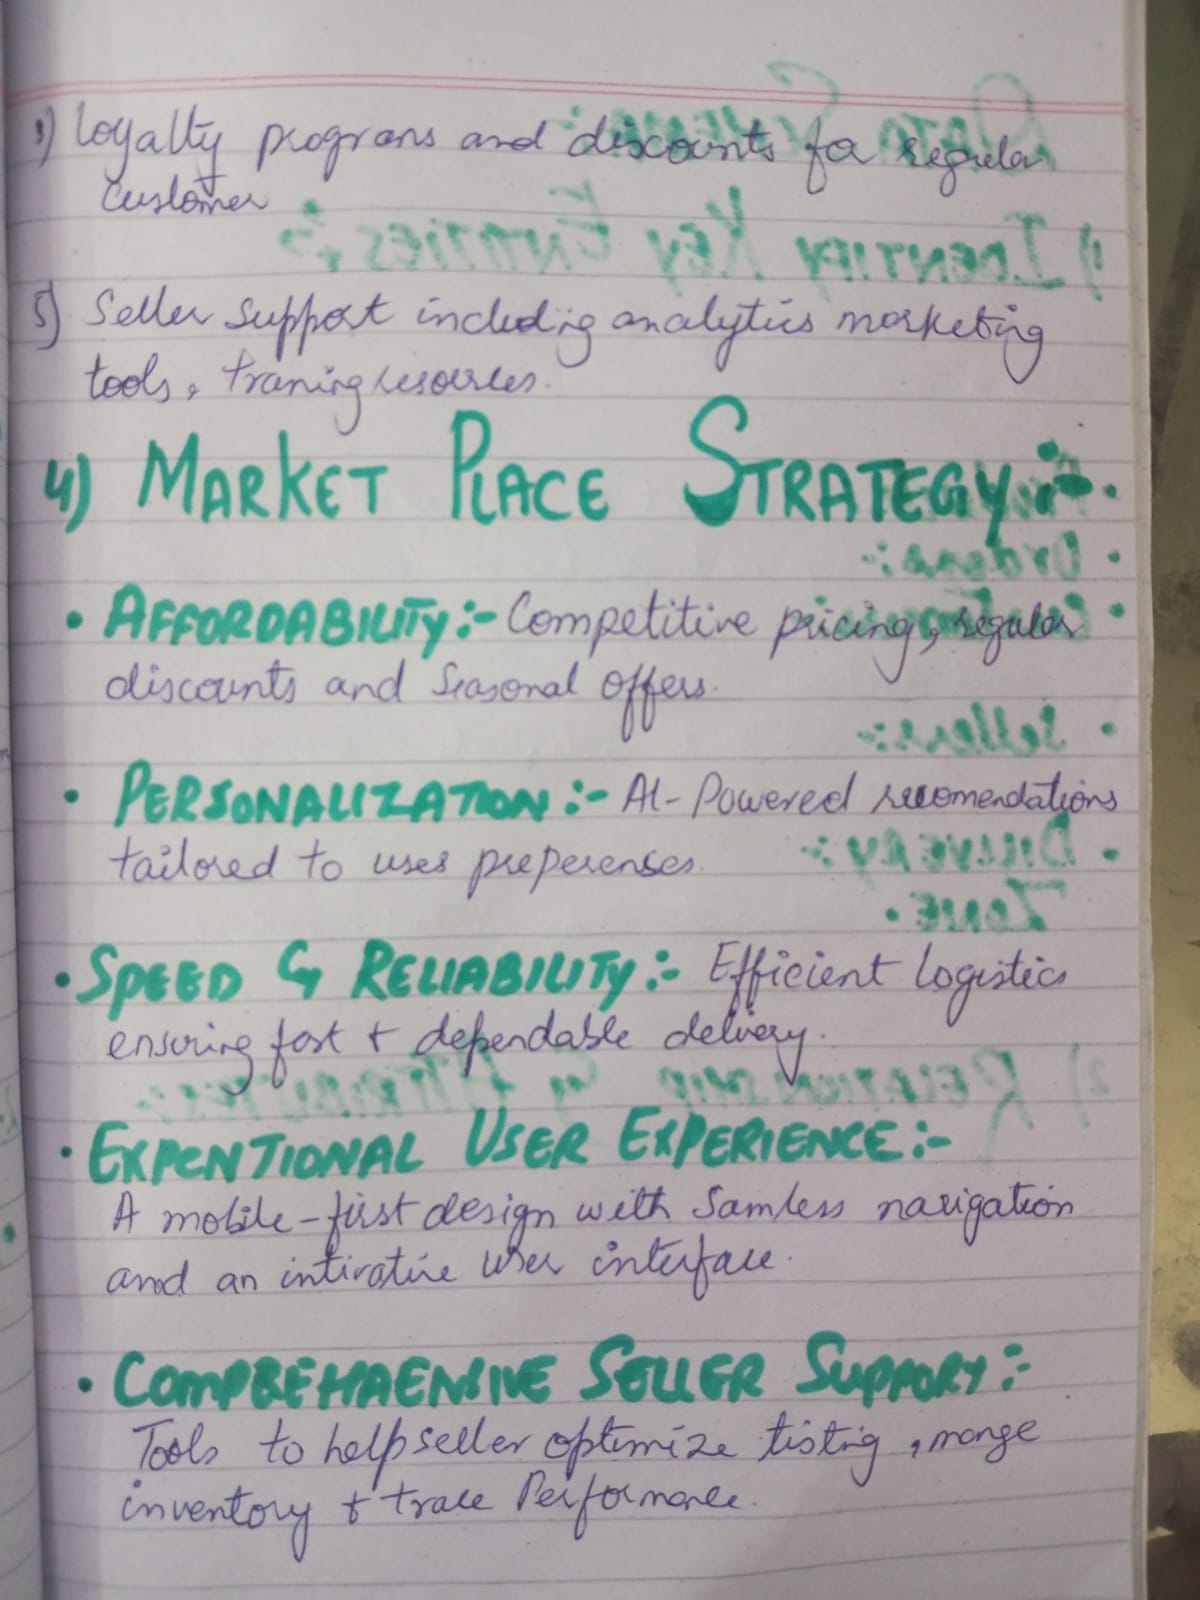 3) Loyalty programs and discounts for regular
customer
5) Seller support including analytics marketing
tools, traning resources.
4) MARKET PLACE STRATEGY :-
• AFFORDABILITY :- Competitive pricing, regular
discounts and Seasonal offers.
• PERSONALIZATION :- AI-Powered recomendations
tailored to uses preperenses.
• SPEED & RELIABILITY :- Efficient Logistics
ensuring fast & dependable delivery.
• EXPENTIONAL USER EXPERIENCE :-
A mobile-first design with Samless navigation
and an intirative User interface.
• COMPREHAENSIVE SELLER SUPPORT :-
Tools to help seller optimize listing, mange
inventory & trace Performance.